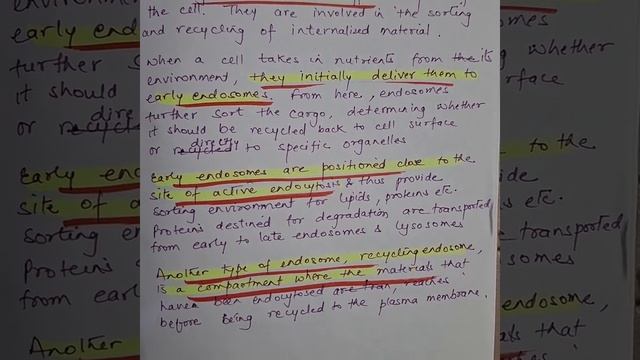 the cell. They are involved in the sorting
and recycling of internalised material.
When a cell takes in nutrients from the its
environment, they initially deliver them to
early endosomes. From here, endosomes
further sort the cargo, determining whether
it should be recycled back to cell surface
or recycled directly to specific organelles
Early endosomes are positioned close to the
site of active endocytosis & thus provide
sorting environment for lipids, proteins etc.
Proteins destined for degradation are transported
from early to late endosomes & lysosomes
Another type of endosome, recycling endosome,
is a compartment where the materials that
have been endocytosed are tran, reaches
before being recycled to the plasma membrane.